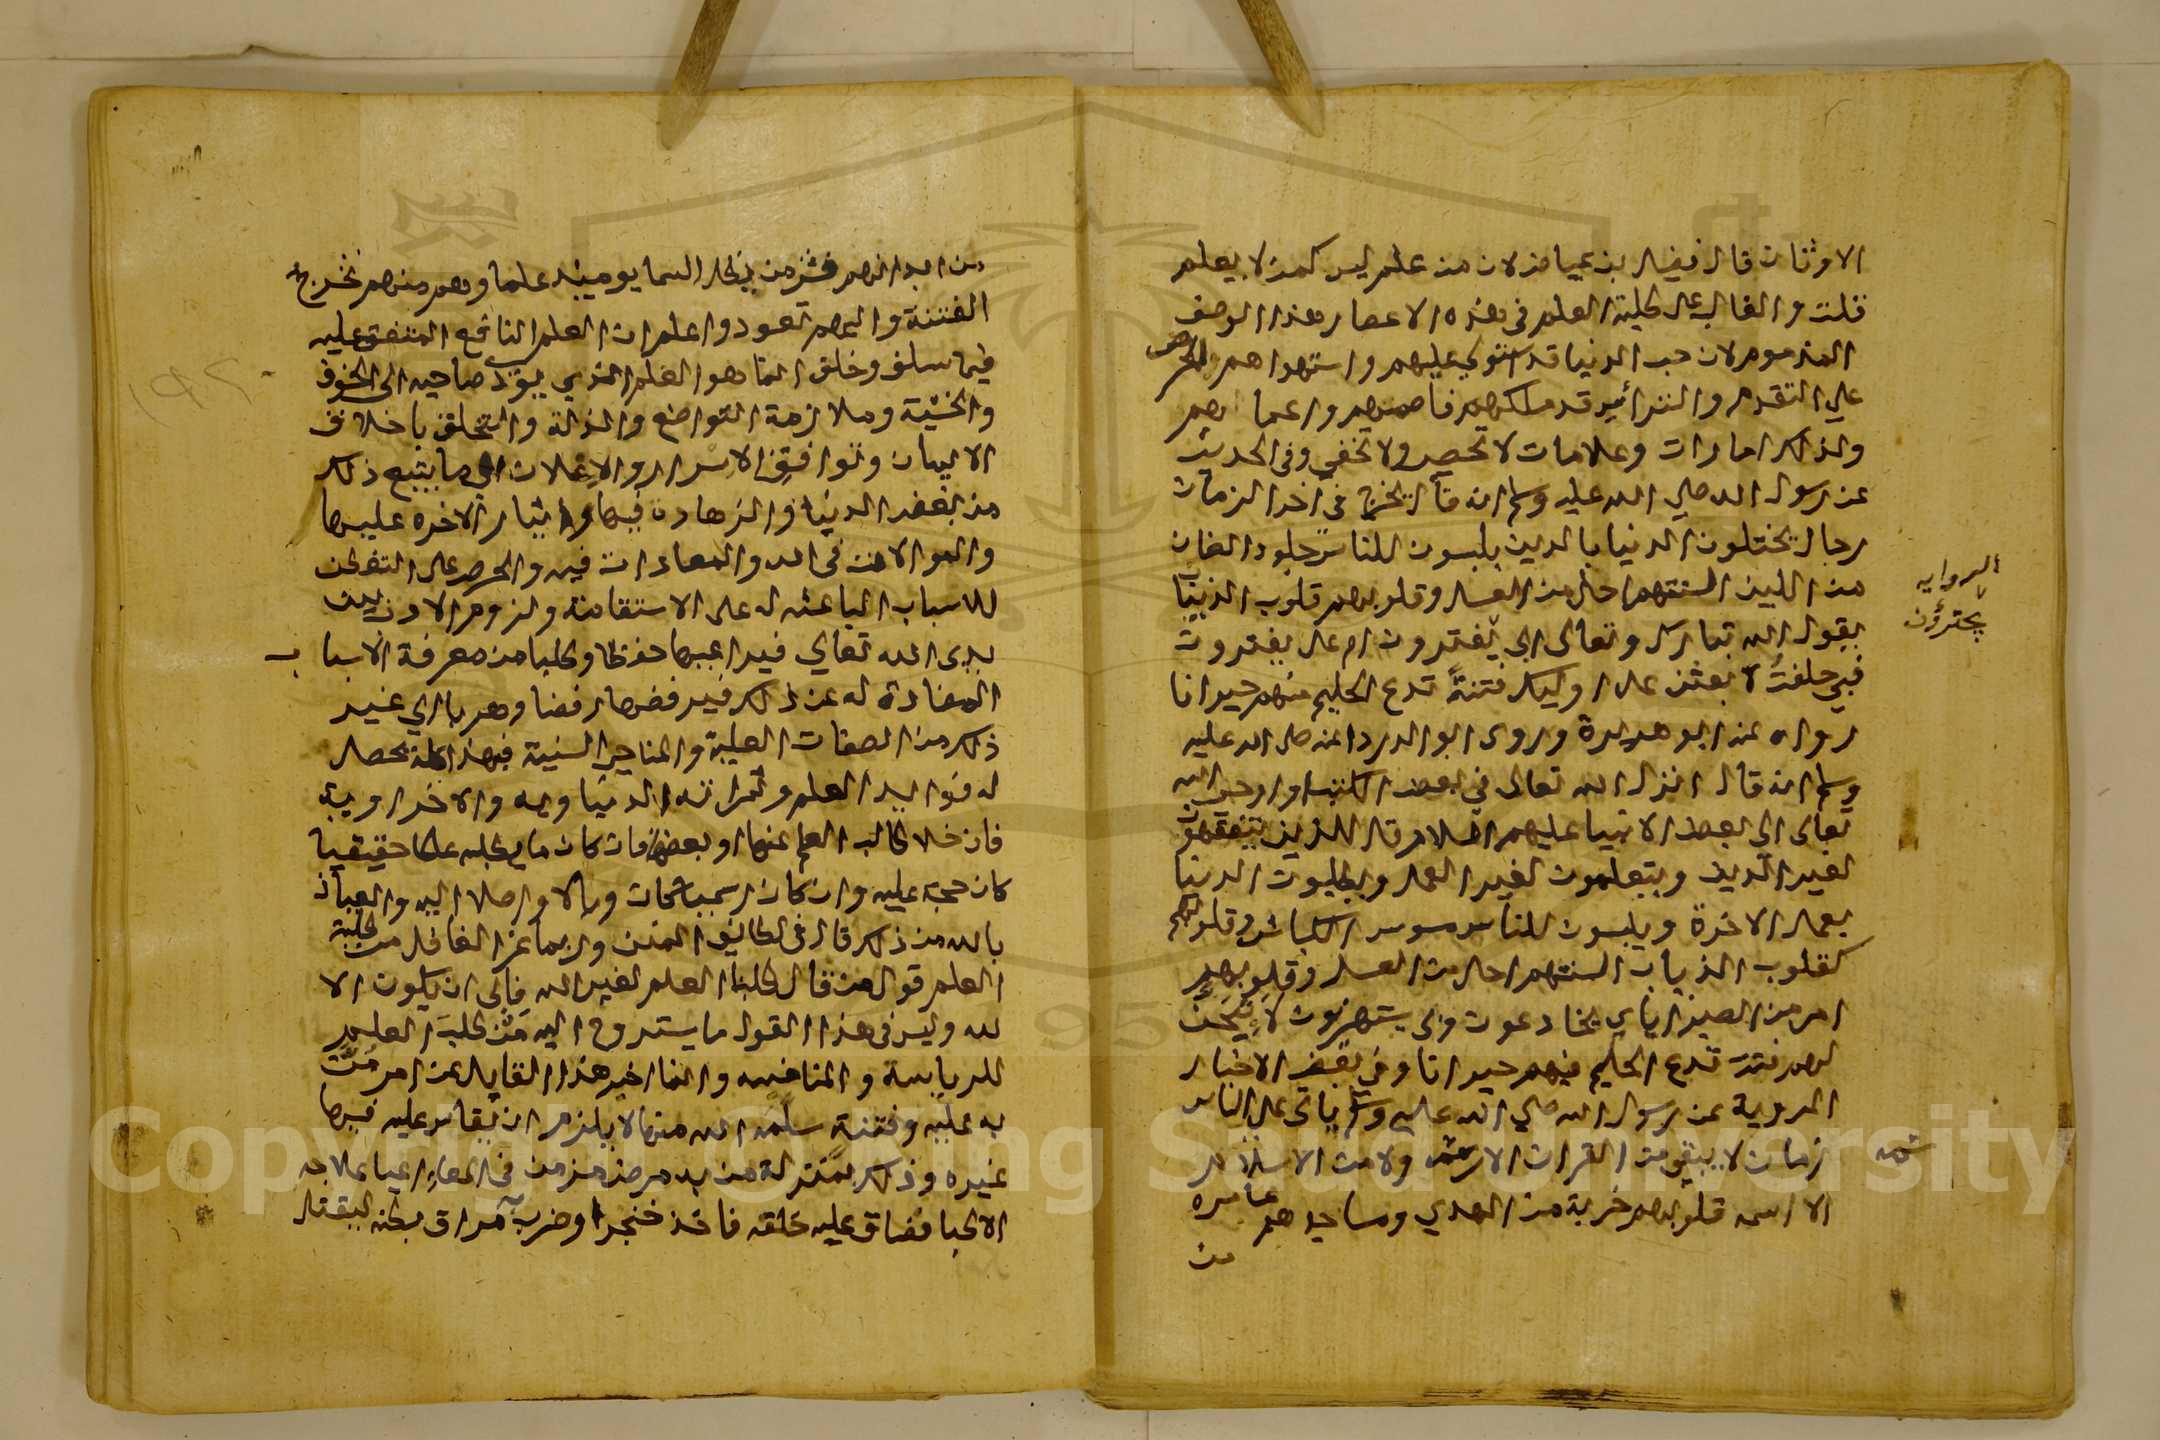 الاوثان قال فضيل بن عياض لان من علم ليس كمن لا يعلم
قلت والغالب على طلبة العلم في هذه الاعصار هذا الوصف
المذموم لان حب الدنيا قد استولي عليهم واستهواهم والحرص
علي التقدم والتراس قد ملكهم فاصمهم واعماهم
ولذلك امارات وعلامات لا تحصي ولا تخفي وفي الحديث
عن رسول الله صلي الله عليه وسلم انه قال يخرج في اخر الزمان
رجال يختلون الدنيا بالدين يلبسون للناس جلود الضان
من اللين السنتهم احلى من العسل وقلوبهم قلوب الذئاب
يقول الله تبارك وتعالى ابي يغترون ام على يفترون
الرواية
يجترؤن
فبي حلفت لا بعثن على اوليك فتنة تدع الحليم منهم حيرانا
رواه عن ابو هريرة وروى ابو الدرداعنه صلى الله عليه
وسلم انه قال انزل الله تعالى في بعض الكتب او اوحى الله
تعالى الى بعض الانبيا عليهم السلام قل للذين يتفقهون
لغير الدين ويتعلمون لغير العمل ويطلبون الدنيا
بعمل الاخرة ويلبسون للناس مسوس الكباش وقلوبهم
كقلوب الذياب السنتهم احلى من العسل وقلوبهم
امر من الصبر اياي يخادعون وبي يستهزئون لاتيحن
لهم فتنة تدع الحليم فيهم حيرانا وفي بعض الاخبار
المروية عن رسول الله صلي الله عليه وسلم ياتي على الناس
زمان لا يبقى من القران الا رسمه ولا من الاسلام
الا اسمه قلوبهم خربة من الهدي ومساجدهم عامره
من
من ابدانهم شر من يظل السما يوميذ علما وهم منهم تخرج
الفتنة واليهم تعود واعلم ان العلم النافع المتفق عليه
فيما سلف وخلف انما هو العلم الذي يودي صاحبه الى الخوف
والخشية وملازمة التواضع والذلة والتخلق باخلاق
الايمان وتوافق الاسرار والاعلان الى ما يتبع ذلك
من بغض الدنيا والزهادة فيها وايثار الاخره عليها
والموالات في الله والمعادات فيه والحرص على التفطن
للاسباب الباعثه له على الاستقامة ولزوم الادب بين
يدى الله تعالي فيراعيها حفظا وطلبا من معرفة الاسباب
المضادة له عن ذلك فيرفضها رفضا وهربا الي غير
ذلك من الصفات العلية والمناحي السنية فبهذا كله تحصل
له فوايد العلم وثمراته الدنياويه والاخراوية
فان خلا طالب العلم عنها او بعضها فان كان ما يطلبه علما حقيقيا
كان حجة عليه وان كان رسميا كان وبالا واصلا اليه والعياذ
بالله من ذلك قال في لطائف المنن وربما غر الغافل من طلبة
العلم قول من قال طلبنا العلم لغير الله فابى ان يكون الا
لله وليس في هذا القول ما يستروح اليه من طلب العلم
للرياسة والمنافسه وانما اخبر هذا القايل عن امر من
به عليه وفتنة سلمه الله منها لا يلزم ان يقاس عليه فيها
غيره وذلك بمنزلة من به مرض مزمن في المعا اعيا علاجه
الاطبا فضاق عليه خلقه فاخذ خنجرا وضرب به مراق بطنه ليقتل